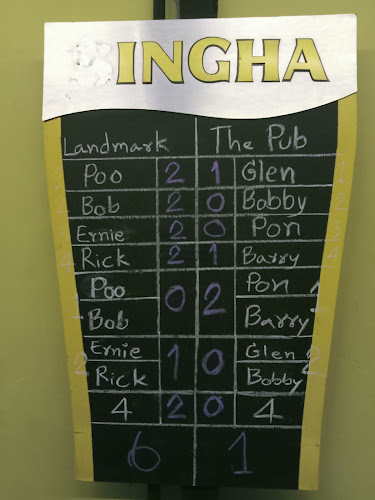 SINGHA
Landmark The Pub
Poo 2 1 Glen
Bob 2 0 Bobby
Ernie 2 0 Pon
4 Rick 2 1 Barry
Poo Pon 1
0 2
Bob Barry
Ernie Glen 2
2 1 0
Rick Bobby
4 2 0 4
6 1